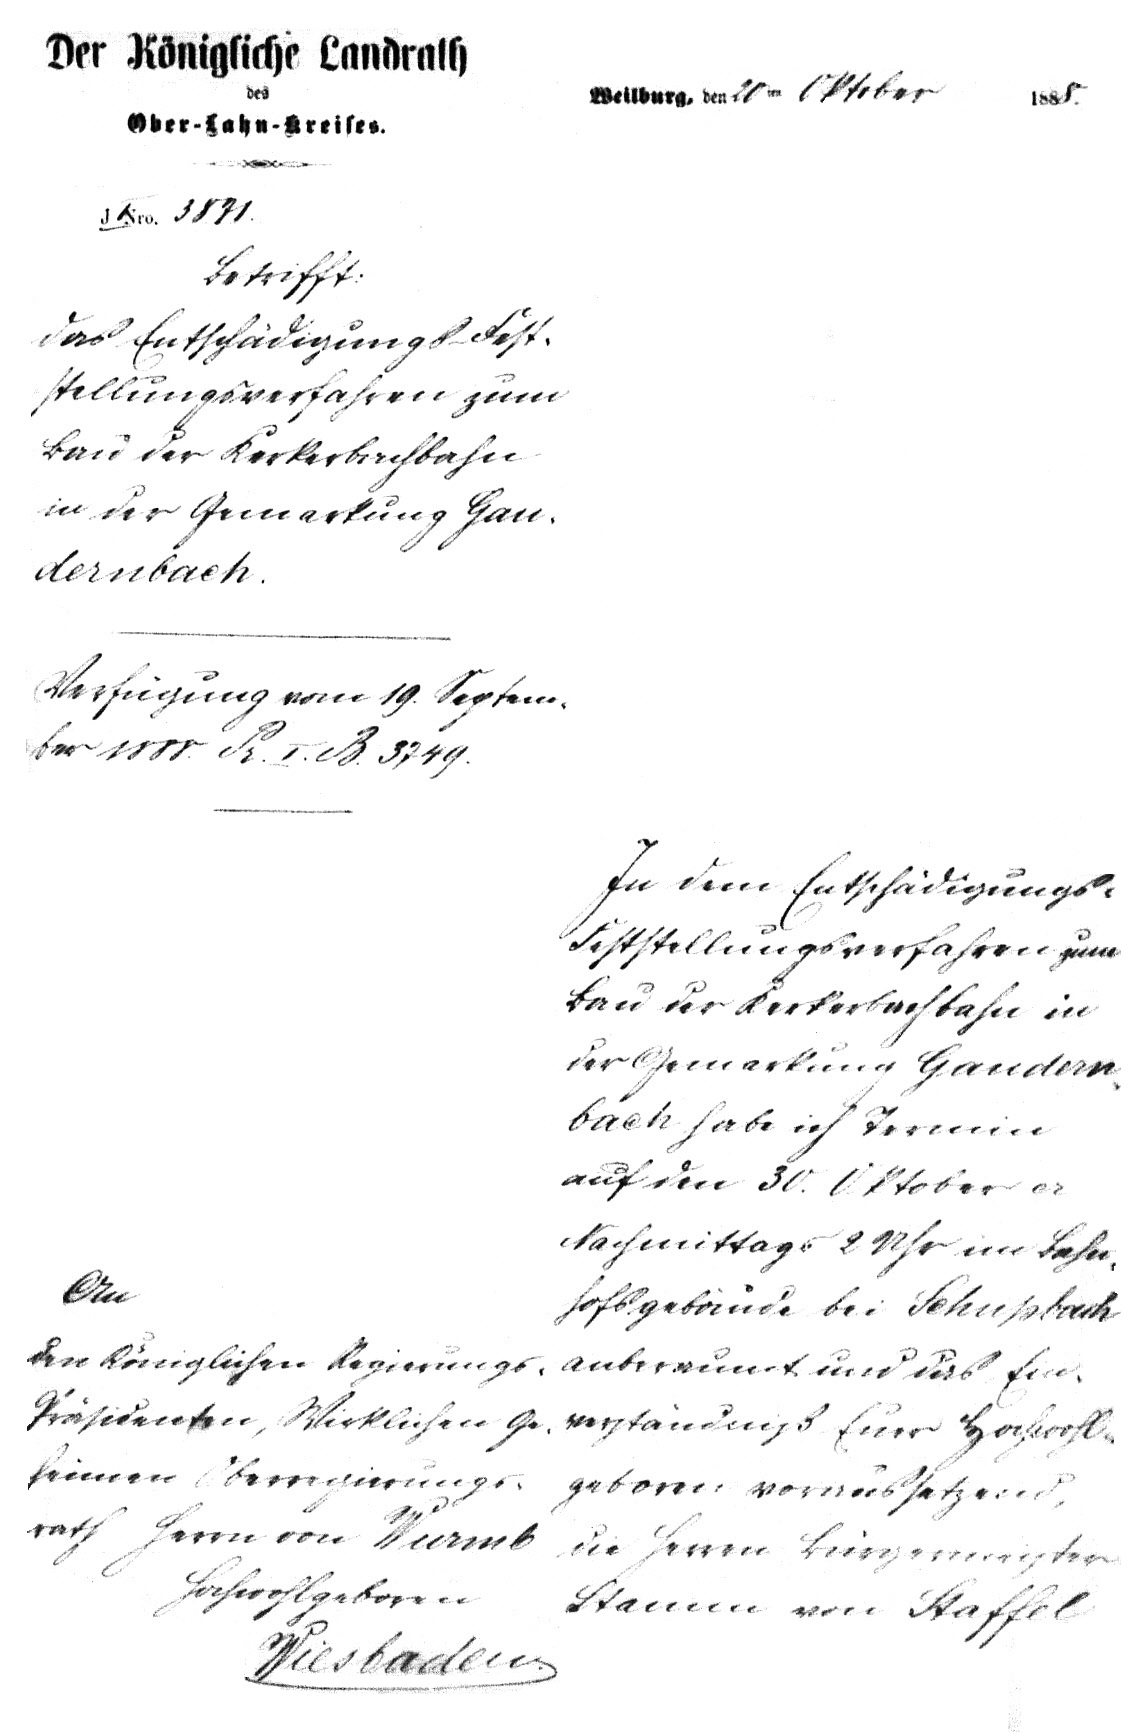 Der Königliche Landrath
des
Ober-Lahn-Kreises.
Weilburg, den 20ten Oktober 1888.
J. Nro. 3871.
Betrifft:
das Entschädigungs-Fest-
stellungsverfahren zum
Bau der Kerkerbachbahn
in der Gemarkung Gau-
dernbach.
Verfügung vom 19. Septem-
ber 1888. Pr. I. B. 3749.
In dem Entschädigungs-
Feststellungsverfahren zum
Bau der Kerkerbachbahn in
der Gemarkung Gaudern-
bach habe ich Termin
auf den 30. Oktober cr
Nachmittags 2 Uhr im Bahn-
hofsgebäude bei Schupbach
anberaumt und das Ein-
verständniß Euer Hochwohl-
geboren voraussetzend,
die Herren Bürgermeister
Stamm von Staffel
An
den Königlichen Regierungs-
Präsidenten, Wirklichen Ge-
heimen Oberregierungs-
rath Herrn von Wurmb
Hochwohlgeboren
Wiesbaden.